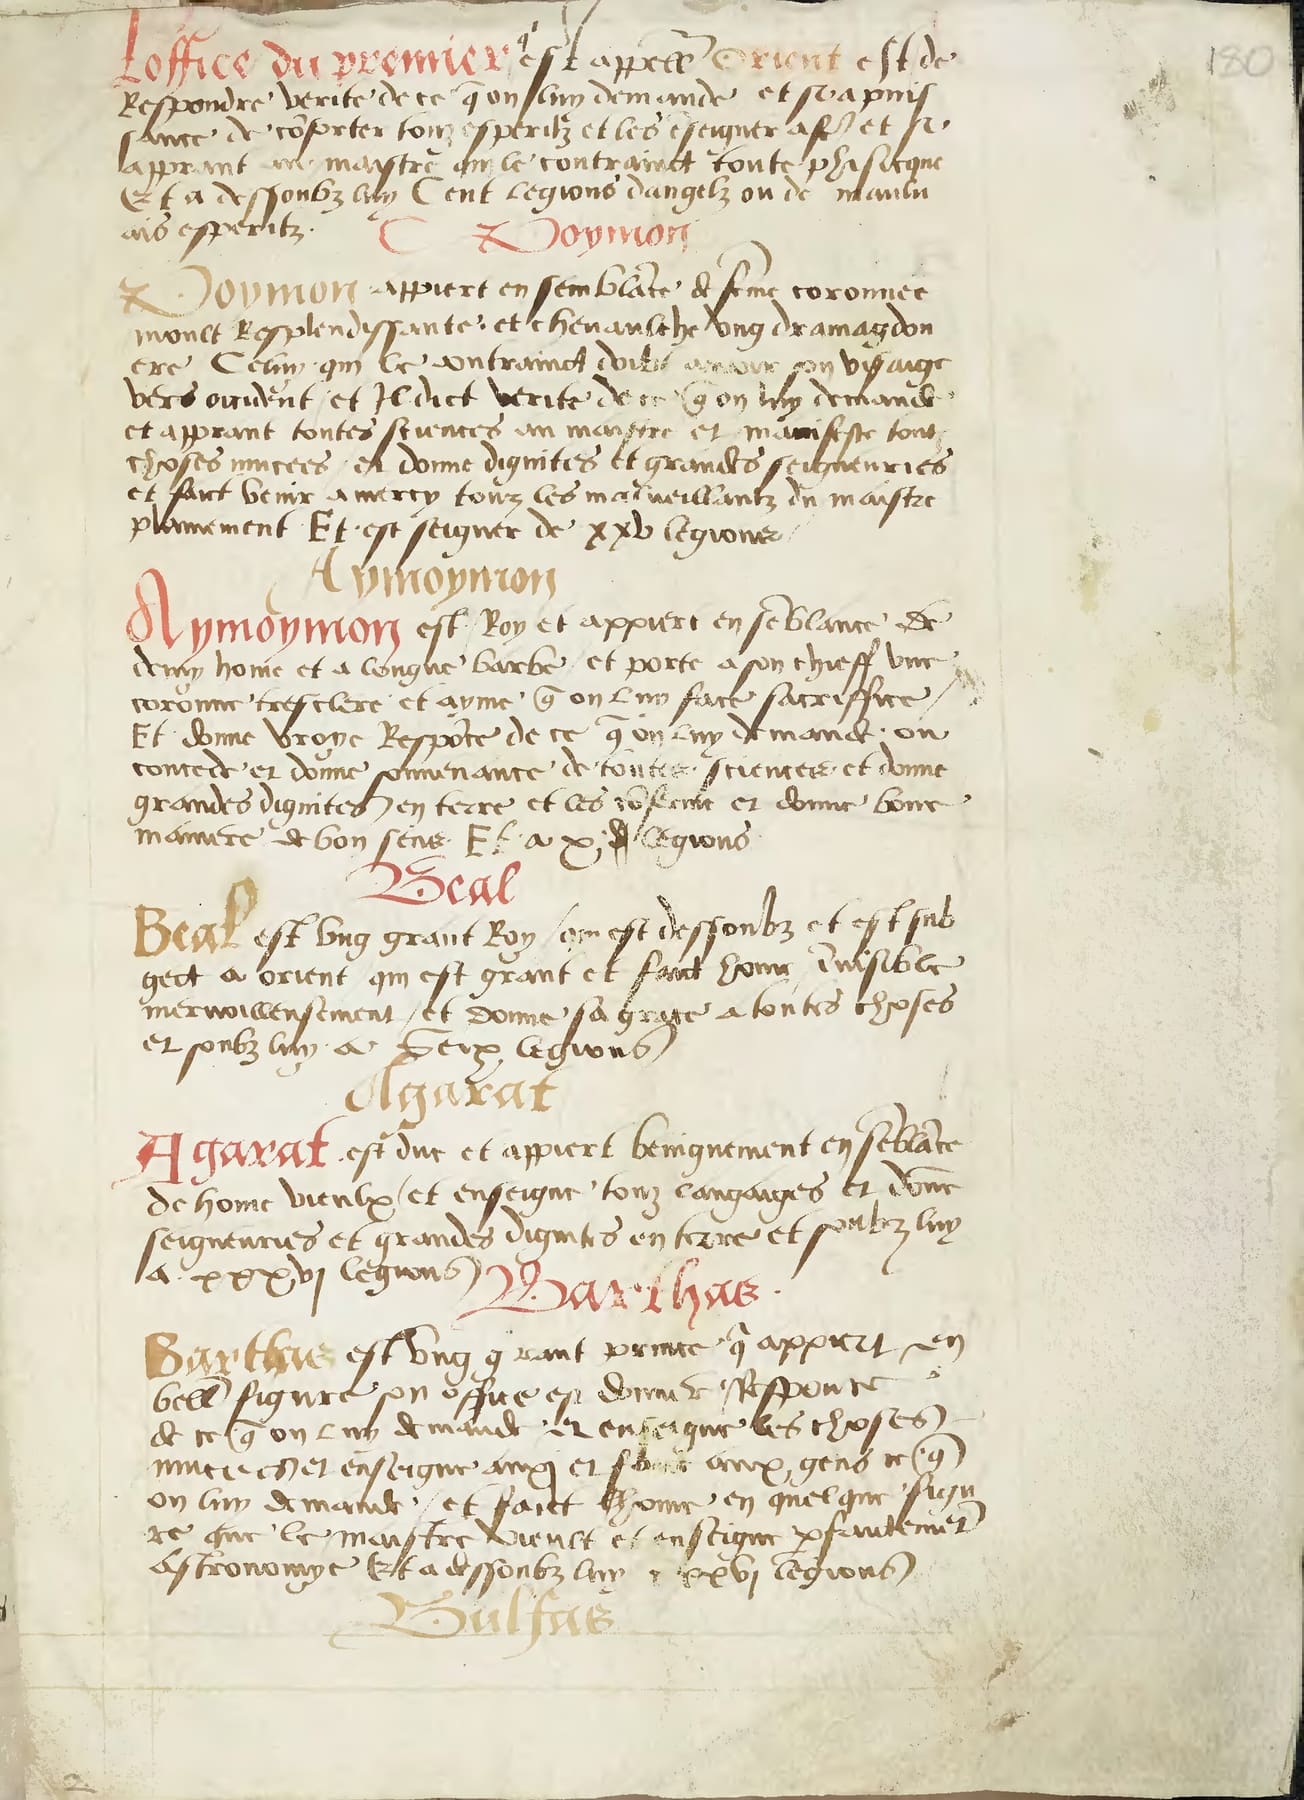 180
Loffice du premier q̃ est appellé Orient est de
Respondre verite de ce q̃ on luy demande et si a puis
sance de cõforter touz esperitz et les ẽseigner
apprant au maistre qui le contrainct toute phisicque
Et a dessoubz luy Cent legions dangelz ou de maulu
ais esperitz.
Poymon
Poymon appiert en semblãce de fẽme coronnee
moult Resplendissante et chevaulche ung dramagdon
ere Celuy qui le contrainct doibt avoir son visaige
vers occident et Il dict verite de ce q̃ on luy demande
et apprant toutes sciences au maistre et manifeste tout
choses mucees et donne dignites et grandes seigneuries
et faict venir a mercy touz les malveillantz du maistre
plainement Et est seigner de xxv legions
Aymoymon
Aymoymon est Roy et appiert en sẽblance de
demy home et a longue barbe et porte a son chieff une
coronne tresclere et ayme q̃ on luy face sacriffice
Et donne vraye Respõce de ce q̃ on luy demande ou
concede et donne souvenance de toutes sciences et donne
grandes dignites en terre et les cõferme et donne bone
maniere de bon sens. Et a x legions
Beal
Beal est ung grant Roy qui est dessoubz et est sub
gect a orient qui est grant et faict home ĩvisible
merveilleusement et donne sa grace a toutes choses
et soubz luy a legions
Agarat
Agarat est duc et appiert benignement en sẽblãce
de home vieulx et enseigne touz langaiges et dõne
seigneuries et grandes dignites en terre et soubz luy
a xxxvi legions
Barthas
Barthas est ung grant prince q̃ appiert en
bell figure son office est donner Responce
de ce q̃ on luy demande et enseigne les choses
mucees et enseigne aux gens ce q̃
on luy demande et faict home en quelque figu
re que le maistre vieult et enseigne
Astronomye Et a dessoubz luy xxvi legions
Bulfas